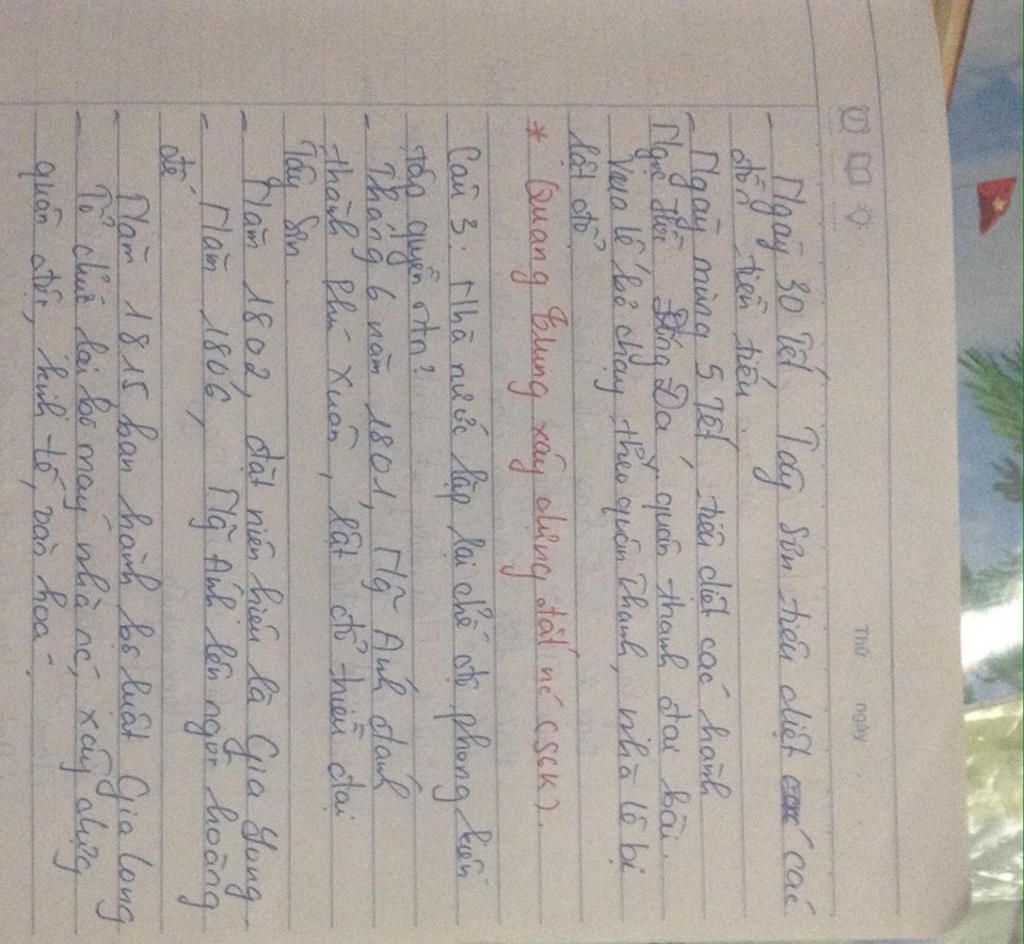 Thứ ngày
- Ngày 30 Tết Tây Sơn tiêu diệt các
đồn tiền tiêu.
- Ngày mùng 5 Tết, tiêu diệt các hành
Ngọc Hồi Đống Đa, quân thanh đại bại.
Vua lê bỏ chạy theo quân Thanh, nhà lê bị
lật đổ
* Quang Trung xây dựng đất nc (SGK).
Câu 3: Nhà nước lập lại chế độ phong kiến
tập quyền ntn?
- Tháng 6 năm 1801, Ng Ánh đánh
thành Phú Xuân, lật đổ triều đại
Tây Sơn.
- Năm 1802, đặt niên hiệu là Gia Long
- Năm 1806, Ng Ánh lên ngôi hoàng
đế
- Năm 1815 ban hành bộ luật Gia long
- Tổ chức lại bộ máy nhà nc, xây dựng
quân đội, kinh tế, văn hoá.